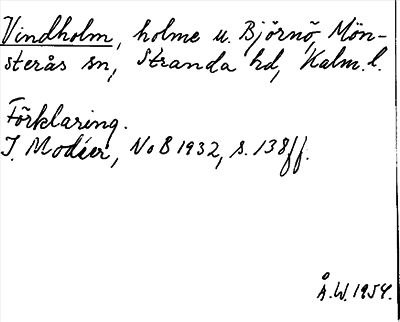 Vindholm, holme u. Björnö, Mön-
sterås sn, Stranda hd, Kalm. l.
Förklaring.
I. Modéer, NoB 1932, s. 138ff.
Å.W. 1954.